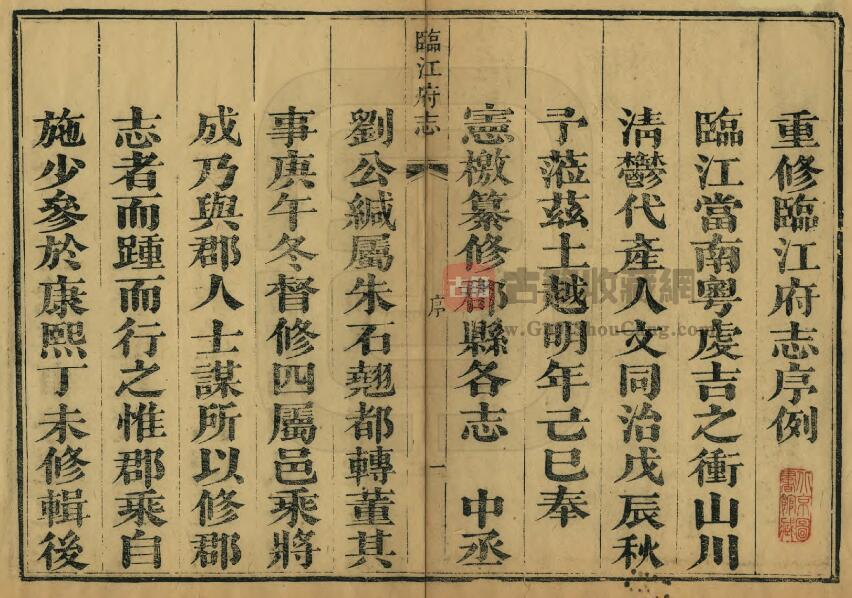 重修臨江府志序例
臨江當南粵虔吉之衝山川
清鬱代產人文同治戊辰秋
予蒞茲土越明年己巳奉
憲檄纂修郡縣各志　中丞
臨江府志
序
一
劉公緘屬朱石翹都轉董其
事庚午冬督修四屬邑乘將
成乃與郡人士謀所以修郡
志者而踵而行之惟郡乘自
施少參於康熙丁未修輯後
北京圖
書館藏
古籍收藏網